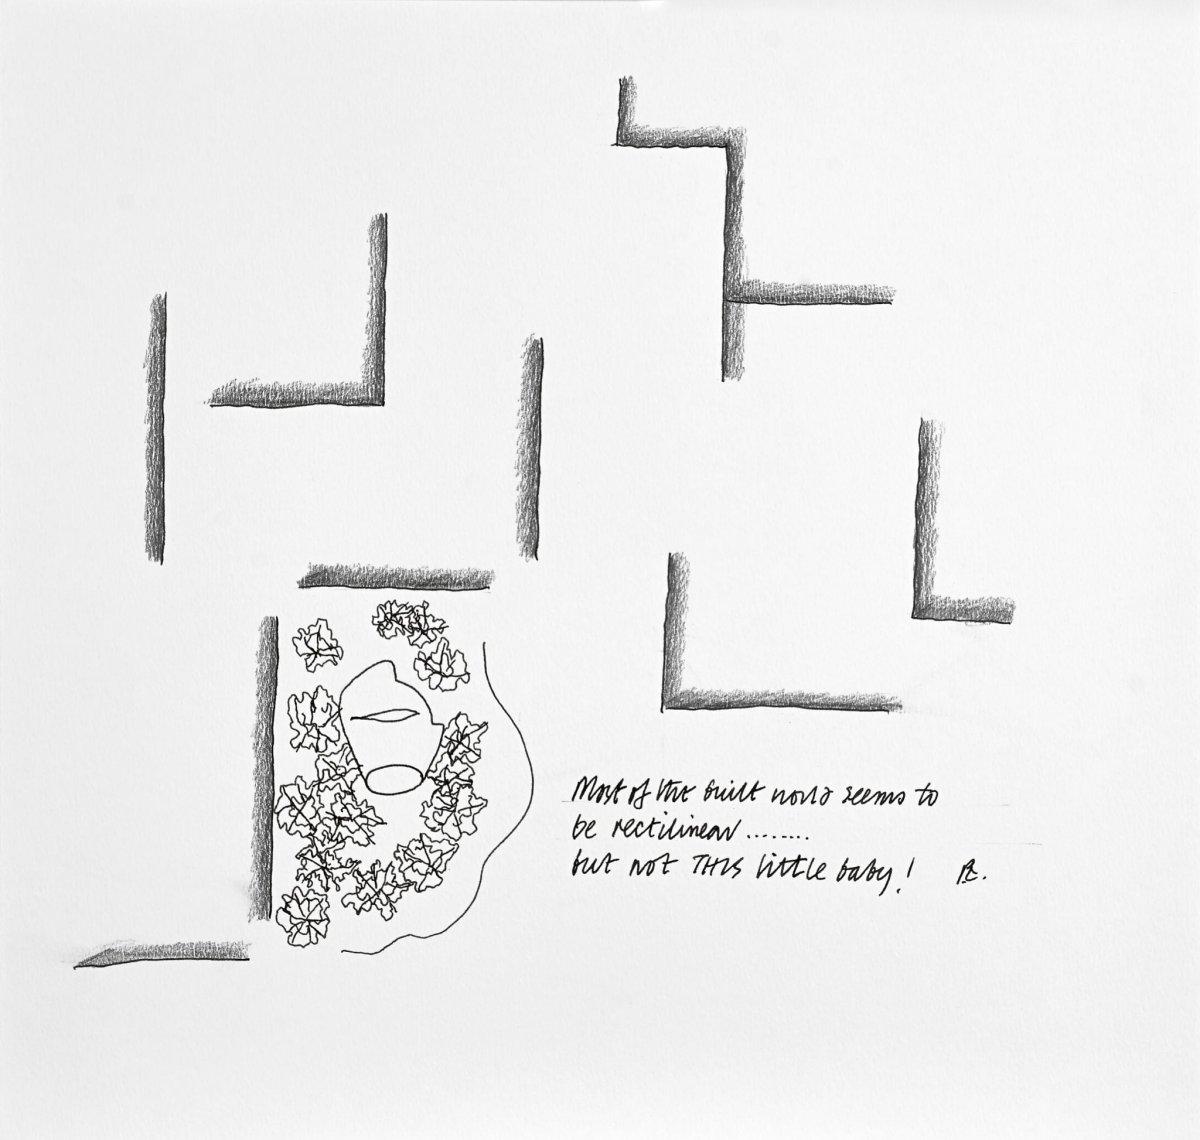 Most of the built world seems to
be rectilinear ........
but not THIS little baby!